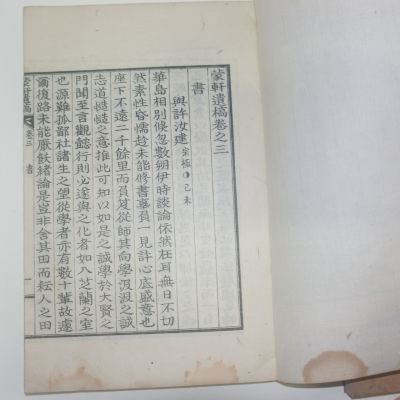 蒙軒遺稿卷之三
書
與許汝建 癸極 己未
華島相別倏忽數朔伊時談論依然在耳無日不切
然素性容懦趁未能修書摹員一見許心底盛意也
座下不遠二千餘里而負笈從師其向學汲汲之誠
志道慥慥之意推此可知以如是之誠學於大賢之
門聞至言觀懿行則必遂與之化者如入芝蘭之室
也源難孤鄙社諸生之望從學者亦有數十輩故遠
爾復路未能厭飫緖論是豈非舍其田而耘人之田
蒙軒遺稿 卷三 書 一